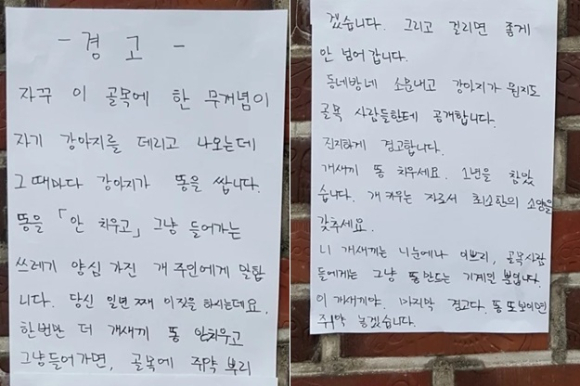 - 경 고 -
자꾸 이 골목에 한 무개념이
자기 강아지를 데리고 나오는데
그때마다 강아지가 똥을 쌉니다.
똥을 「안 치우고」 그냥 들어가는
쓰레기 양심 가진 개 주인에게 말합
니다. 당신 일년 째 이짓을 하시는데요.
한번만 더 개새끼 똥 안치우고
그냥들어가면, 골목에 쥐약 뿌리
겠습니다. 그리고 걸리면 좋게
안 넘어갑니다.
동네방네 소문내고 강아지가 뭔지도
골목 사람들한테 공개합니다.
진지하게 경고합니다.
개새끼 똥 치우세요. 1년을 참았
습니다. 개 키우는 자로서 최소한의 소양을
갖추세요.
니 개새끼는 니눈에나 이쁘지, 골목사람
들에게는 그냥 똥만드는 기계일 뿐입니다.
이 개새끼야. 마지막 경고다. 똥 또 보이면
쥐약 놓겠습니다.